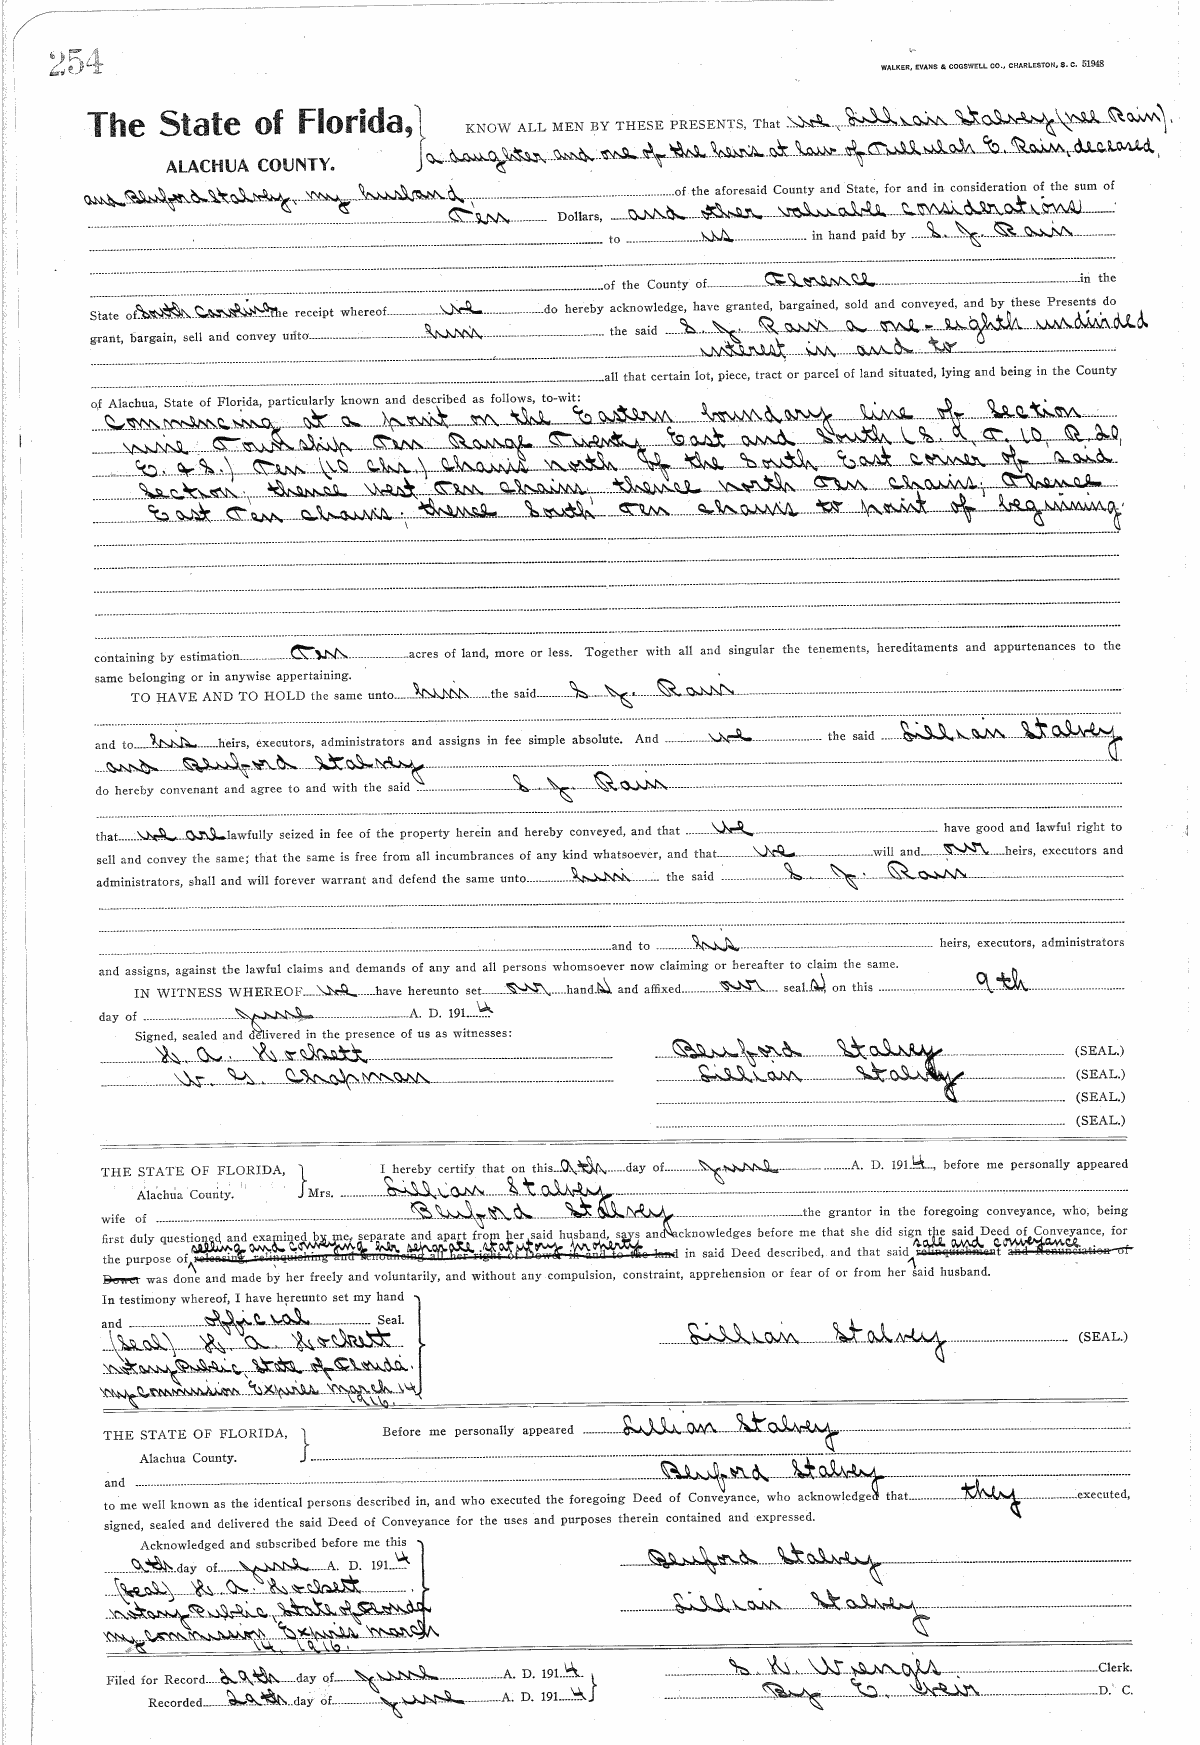 254
WALKER, EVANS & COGSWELL CO., CHARLESTON, S. C. 51948
The State of Florida, KNOW ALL MEN BY THESE PRESENTS, That we, Lillian Stalvey (nee Rain),
ALACHUA COUNTY. a daughter and one of the heirs at law of Tullulah E. Rain, deceased,
and Bluford Stalvey, my husband, of the aforesaid County and State, for and in consideration of the sum of
Ten Dollars, and other valuable considerations
to us in hand paid by S. J. Rain
of the County of Florence in the
State of South Carolina the receipt whereof we do hereby acknowledge, have granted, bargained, sold and conveyed, and by these Presents do
grant, bargain, sell and convey unto him the said S. J. Rain a one-eighth undivided
interest in and to
all that certain lot, piece, tract or parcel of land situated, lying and being in the County
of Alachua, State of Florida, particularly known and described as follows, to-wit:
Commencing at a point on the Eastern boundary line of Section
nine Township Ten Range Twenty East and South (S. 9, T. 10, R 20,
E. & S.) Ten (10 chs.) chains north of the South East corner of said
Section; thence west Ten chains; thence north Ten chains; thence
East Ten chains; thence South Ten chains to point of beginning.
containing by estimation Ten acres of land, more or less. Together with all and singular the tenements, hereditaments and appurtenances to the
same belonging or in anywise appertaining.
TO HAVE AND TO HOLD the same unto him the said S. J. Rain
and to his heirs, executors, administrators and assigns in fee simple absolute. And we the said Lillian Stalvey
and Bluford Stalvey
do hereby convenant and agree to and with the said S. J. Rain
that we are lawfully seized in fee of the property herein and hereby conveyed, and that we have good and lawful right to
sell and convey the same; that the same is free from all incumbrances of any kind whatsoever, and that we will and our heirs, executors and
administrators, shall and will forever warrant and defend the same unto him the said S J. Rain
and to his heirs, executors, administrators
and assigns, against the lawful claims and demands of any and all persons whomsoever now claiming or hereafter to claim the same.
IN WITNESS WHEREOF we have hereunto set our hands and affixed our seals on this 9th
day of June A. D. 1914
Signed, sealed and delivered in the presence of us as witnesses:
H. A. Hockett Bluford Stalvey (SEAL.)
W. G. Chapman Lillian Stalvey (SEAL.)
(SEAL.)
(SEAL.)
THE STATE OF FLORIDA, I hereby certify that on this 9th day of June A. D. 1914, before me personally appeared
Alachua County. Mrs. Lillian Stalvey
wife of Bluford Stalvey the grantor in the foregoing conveyance, who, being
first duly questioned and examined by me, separate and apart from her said husband, says and acknowledges before me that she did sign the said Deed of Conveyance, for
selling and conveying her separate statutory property sale and conveyance
the purpose of releasing, relinquishing and renouncing all her right of Dower in and to the land in said Deed described, and that said relinquishment and Renunciation of
Dower was done and made by her freely and voluntarily, and without any compulsion, constraint, apprehension or fear of or from her said husband.
In testimony whereof, I have hereunto set my hand
and official Seal.
(Seal) H. A. Hockett Lillian Stalvey (SEAL.)
Notary Public, State of Florida.
My Commission Expires March 14
1916.
THE STATE OF FLORIDA, Before me personally appeared Lillian Stalvey
Alachua County.
and Bluford Stalvey
to me well known as the identical persons described in, and who executed the foregoing Deed of Conveyance, who acknowledged that they executed,
signed, sealed and delivered the said Deed of Conveyance for the uses and purposes therein contained and expressed.
Acknowledged and subscribed before me this
9th day of June A. D. 1914 Bluford Stalvey
(Seal) H A Hockett
Notary Public, State of Florida Lillian Stalvey
My commission Expires March
14, 1916.
Filed for Record 29th day of June A. D. 1914 S. H. Wienges Clerk.
Recorded 29th day of June A. D. 1914 By E. Weir D. C.